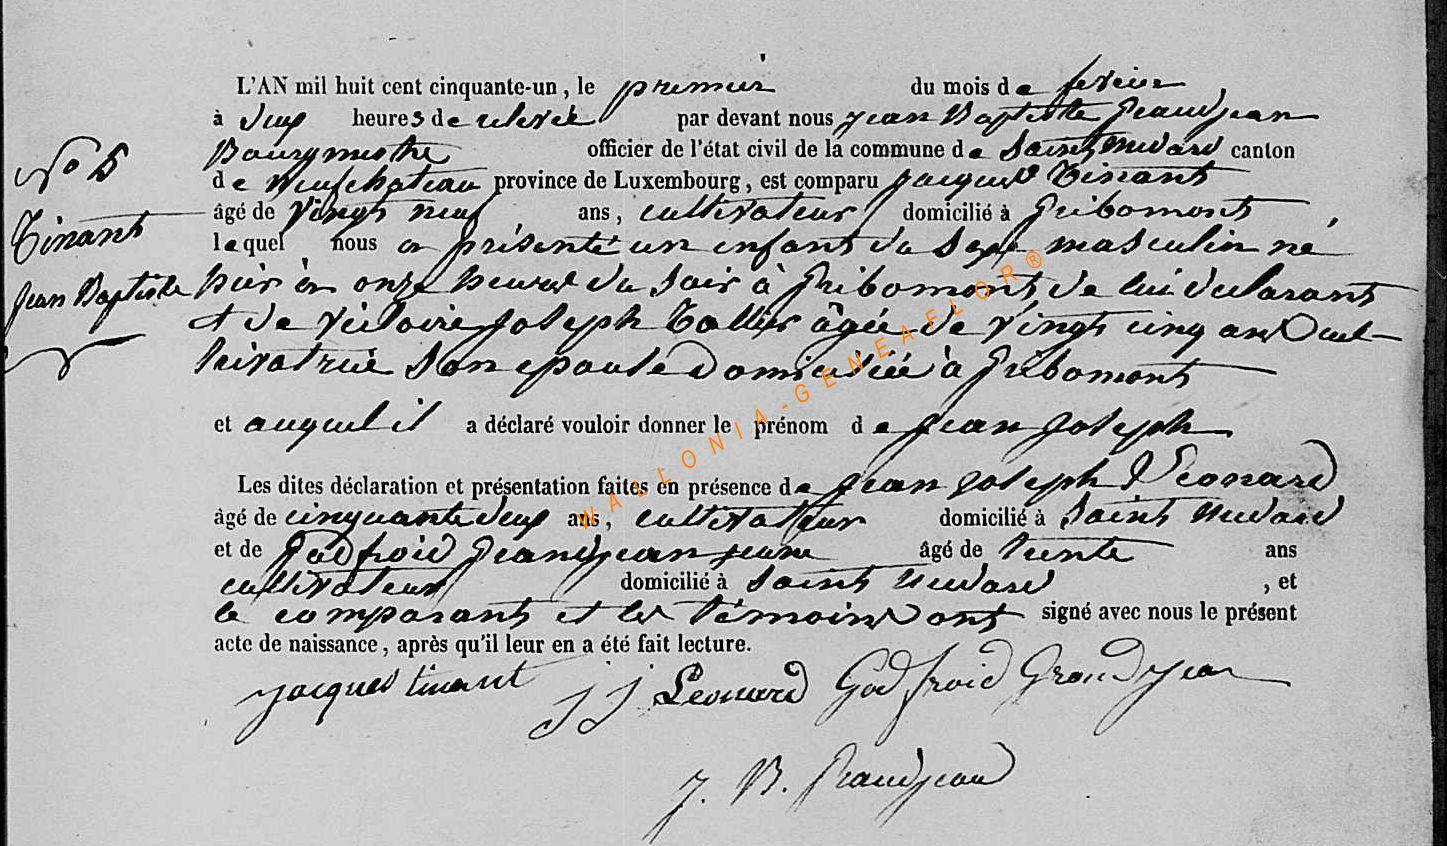 L'AN mil huit cent cinquante-un, le premier du mois de fevrier
à deux heures de relevée par devant nous jean Baptiste Grandjean
Bourgmestre officier de l'état civil de la commune de Saint Medard canton
de Neufchateau province de Luxembourg, est comparu jacques Tinant
âgé de vingt neuf ans, cultivateur domicilié à Gribomont
lequel nous a présenté un enfant du sexe masculin né
hier à onze heures du soir à Gribomont de lui declarant
et de Victoire joseph Collet âgée de vingt cinq ans cul-
tivatrice son epouse domiciliée à Gribomont
et auquel il a déclaré vouloir donner le prénom de jean joseph
Les dites déclaration et présentation faites en présence de jean joseph Leonard
âgé de cinquante deux ans, cultivateur domicilié à Saint Medard
et de Godfroid Grandjean jeune âgé de trente ans
cultivateur domicilié à Saint Medard, et
le comparant et les témoins ont signé avec nous le présent
acte de naissance, après qu'il leur en a été fait lecture.
jacques tinant j j Leonard Godfroid Grandjean
j. B. Grandjean
No 5
Tinant
Jean Baptiste
WALLONIA-GENEAFLOR®